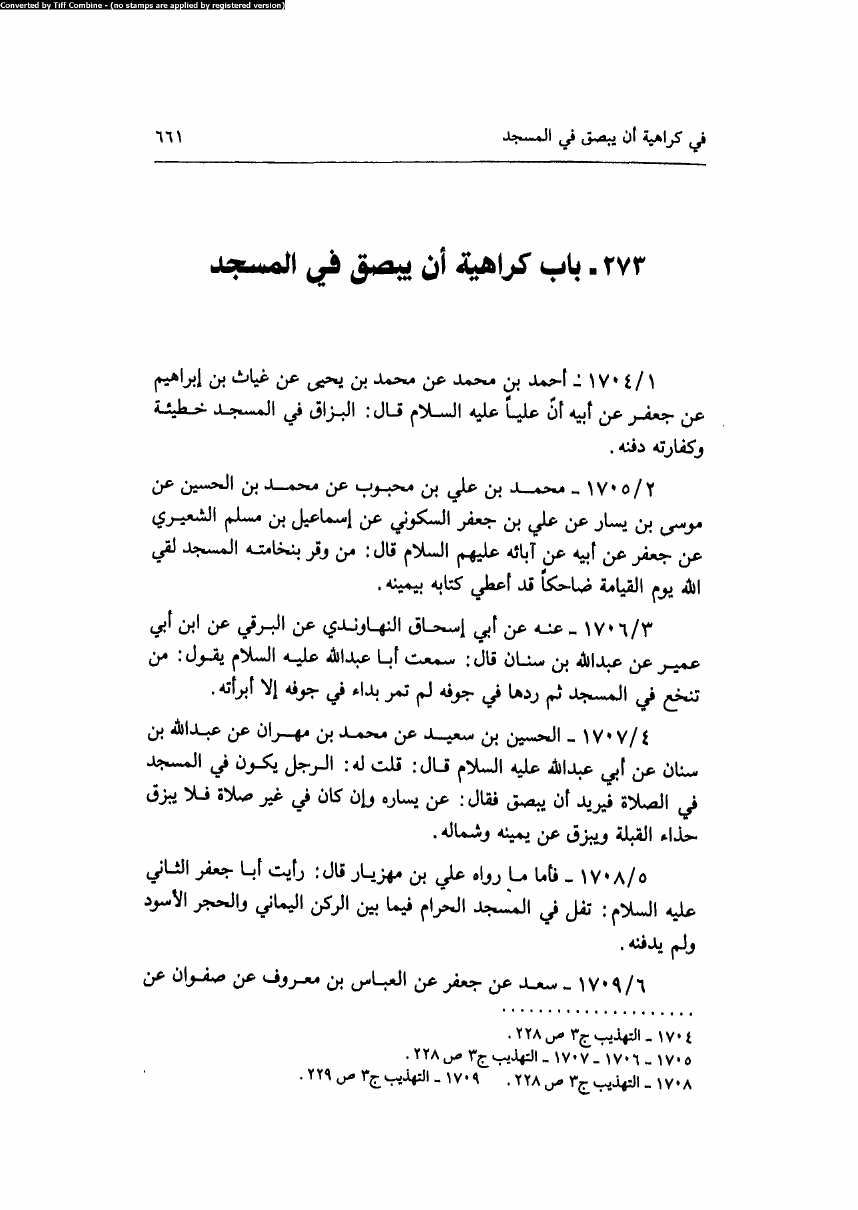 Converted by Tiff Combine - (no stamps are applied by registered version)
في كراهية أن يبصق في المسجد ٦٦١
٢٧٣ ـ باب كراهية أن يبصق في المسجد
١٧٠٤/١ ـ أحمد بن محمد عن محمد بن يحيى عن غياث بن إبراهيم
عن جعفر عن أبيه أنّ علياً عليه السلام قال: البزاق في المسجد خطيئة
وكفارته دفنه.
١٧٠٥/٢ ـ محمد بن علي بن محبوب عن محمد بن الحسين عن
موسى بن يسار عن علي بن جعفر السكوني عن إسماعيل بن مسلم الشعيري
عن جعفر عن أبيه عن آبائه عليهم السلام قال: من وقر بنخامته المسجد لقي
الله يوم القيامة ضاحكاً قد أعطي كتابه بيمينه.
١٧٠٦/٣ ـ عنه عن أبي إسحاق النهاوندي عن البرقي عن ابن أبي
عمير عن عبدالله بن سنان قال: سمعت أبا عبدالله عليه السلام يقول: من
تنخع في المسجد ثم ردها في جوفه لم تمر بداء في جوفه إلا أبرأته.
١٧٠٧/٤ ـ الحسين بن سعيد عن محمد بن مهران عن عبدالله بن
سنان عن أبي عبدالله عليه السلام قال: قلت له: الرجل يكون في المسجد
في الصلاة فيريد أن يبصق فقال: عن يساره وإن كان في غير صلاة فلا يبزق
حذاء القبلة ويبزق عن يمينه وشماله.
١٧٠٨/٥ ـ فأما ما رواه علي بن مهزيار قال: رأيت أبا جعفر الثاني
عليه السلام: تفل في المسجد الحرام فيما بين الركن اليماني والحجر الأسود
ولم يدفنه.
١٧٠٩/٦ ـ سعد عن جعفر عن العباس بن معروف عن صفوان عن
١٧٠٤ ـ التهذيب ج٣ ص ٢٢٨.
١٧٠٥ ـ ١٧٠٦ ـ ١٧٠٧ ـ التهذيب ج٣ ص ٢٢٨.
١٧٠٨ ـ التهذيب ج٣ ص ٢٢٨. ١٧٠٩ ـ التهذيب ج٣ ص ٢٢٩.